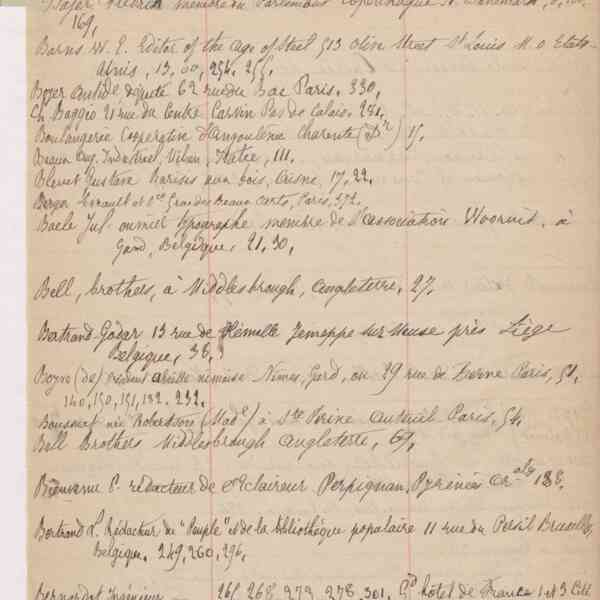 Bajer Frédrik membre du Parlement Copenhague
169,
Barns W. E. Editor of the age of Steel 513 Olive Street St Louis M. o Etats
Unis, 13, 60, 254, 255,
Boyer Antide député 62 rue du Bac Paris. 330,
Ch Baggio 21 rue du Centre Carvin Pas de Calais. 281,
Boulangerie Cooperative d'Angoulême Charente (Dr) 15,
Beaux Eug. Industriel, Italie, 111.
Bleuet Gustave Parises aux bois, Aisne, 17, 22,
Berger Levrault et Cie 5 rue des Beaux Arts, Paris, 372.
Baele Jul. ouvrier typographe membre de l'association Vooruit, à
Gand, Belgique, 21, 30,
Bell, brothers, à Middlesbrough, Angleterre, 27,
Bertrand-Godar 13 rue de Jemeppe sur Meuse près Liège
Belgique, 38,
Boyve (de) président abeille nimoise Nimes, Gard, ou 29 rue de Berne Paris, 51,
140, 150, 151, 182, 232,
née Robertson (Made) à Ste Perine Auteuil Paris, 54,
Bell Brothers Middlesbrough Angleterre, 67,
rédacteur de l'Eclaireur Perpignan Pyrénées Orales 188,
Bertrand L. Rédacteur du "Peuple" et de la bibliothèque populaire 11 rue du Persil Bruxelles,
Belgique. 249, 260, 296,
Bernardot Ingénieur 265, 268, 273, 278, 301, Gd hôtel de France 1 et 3 Cité